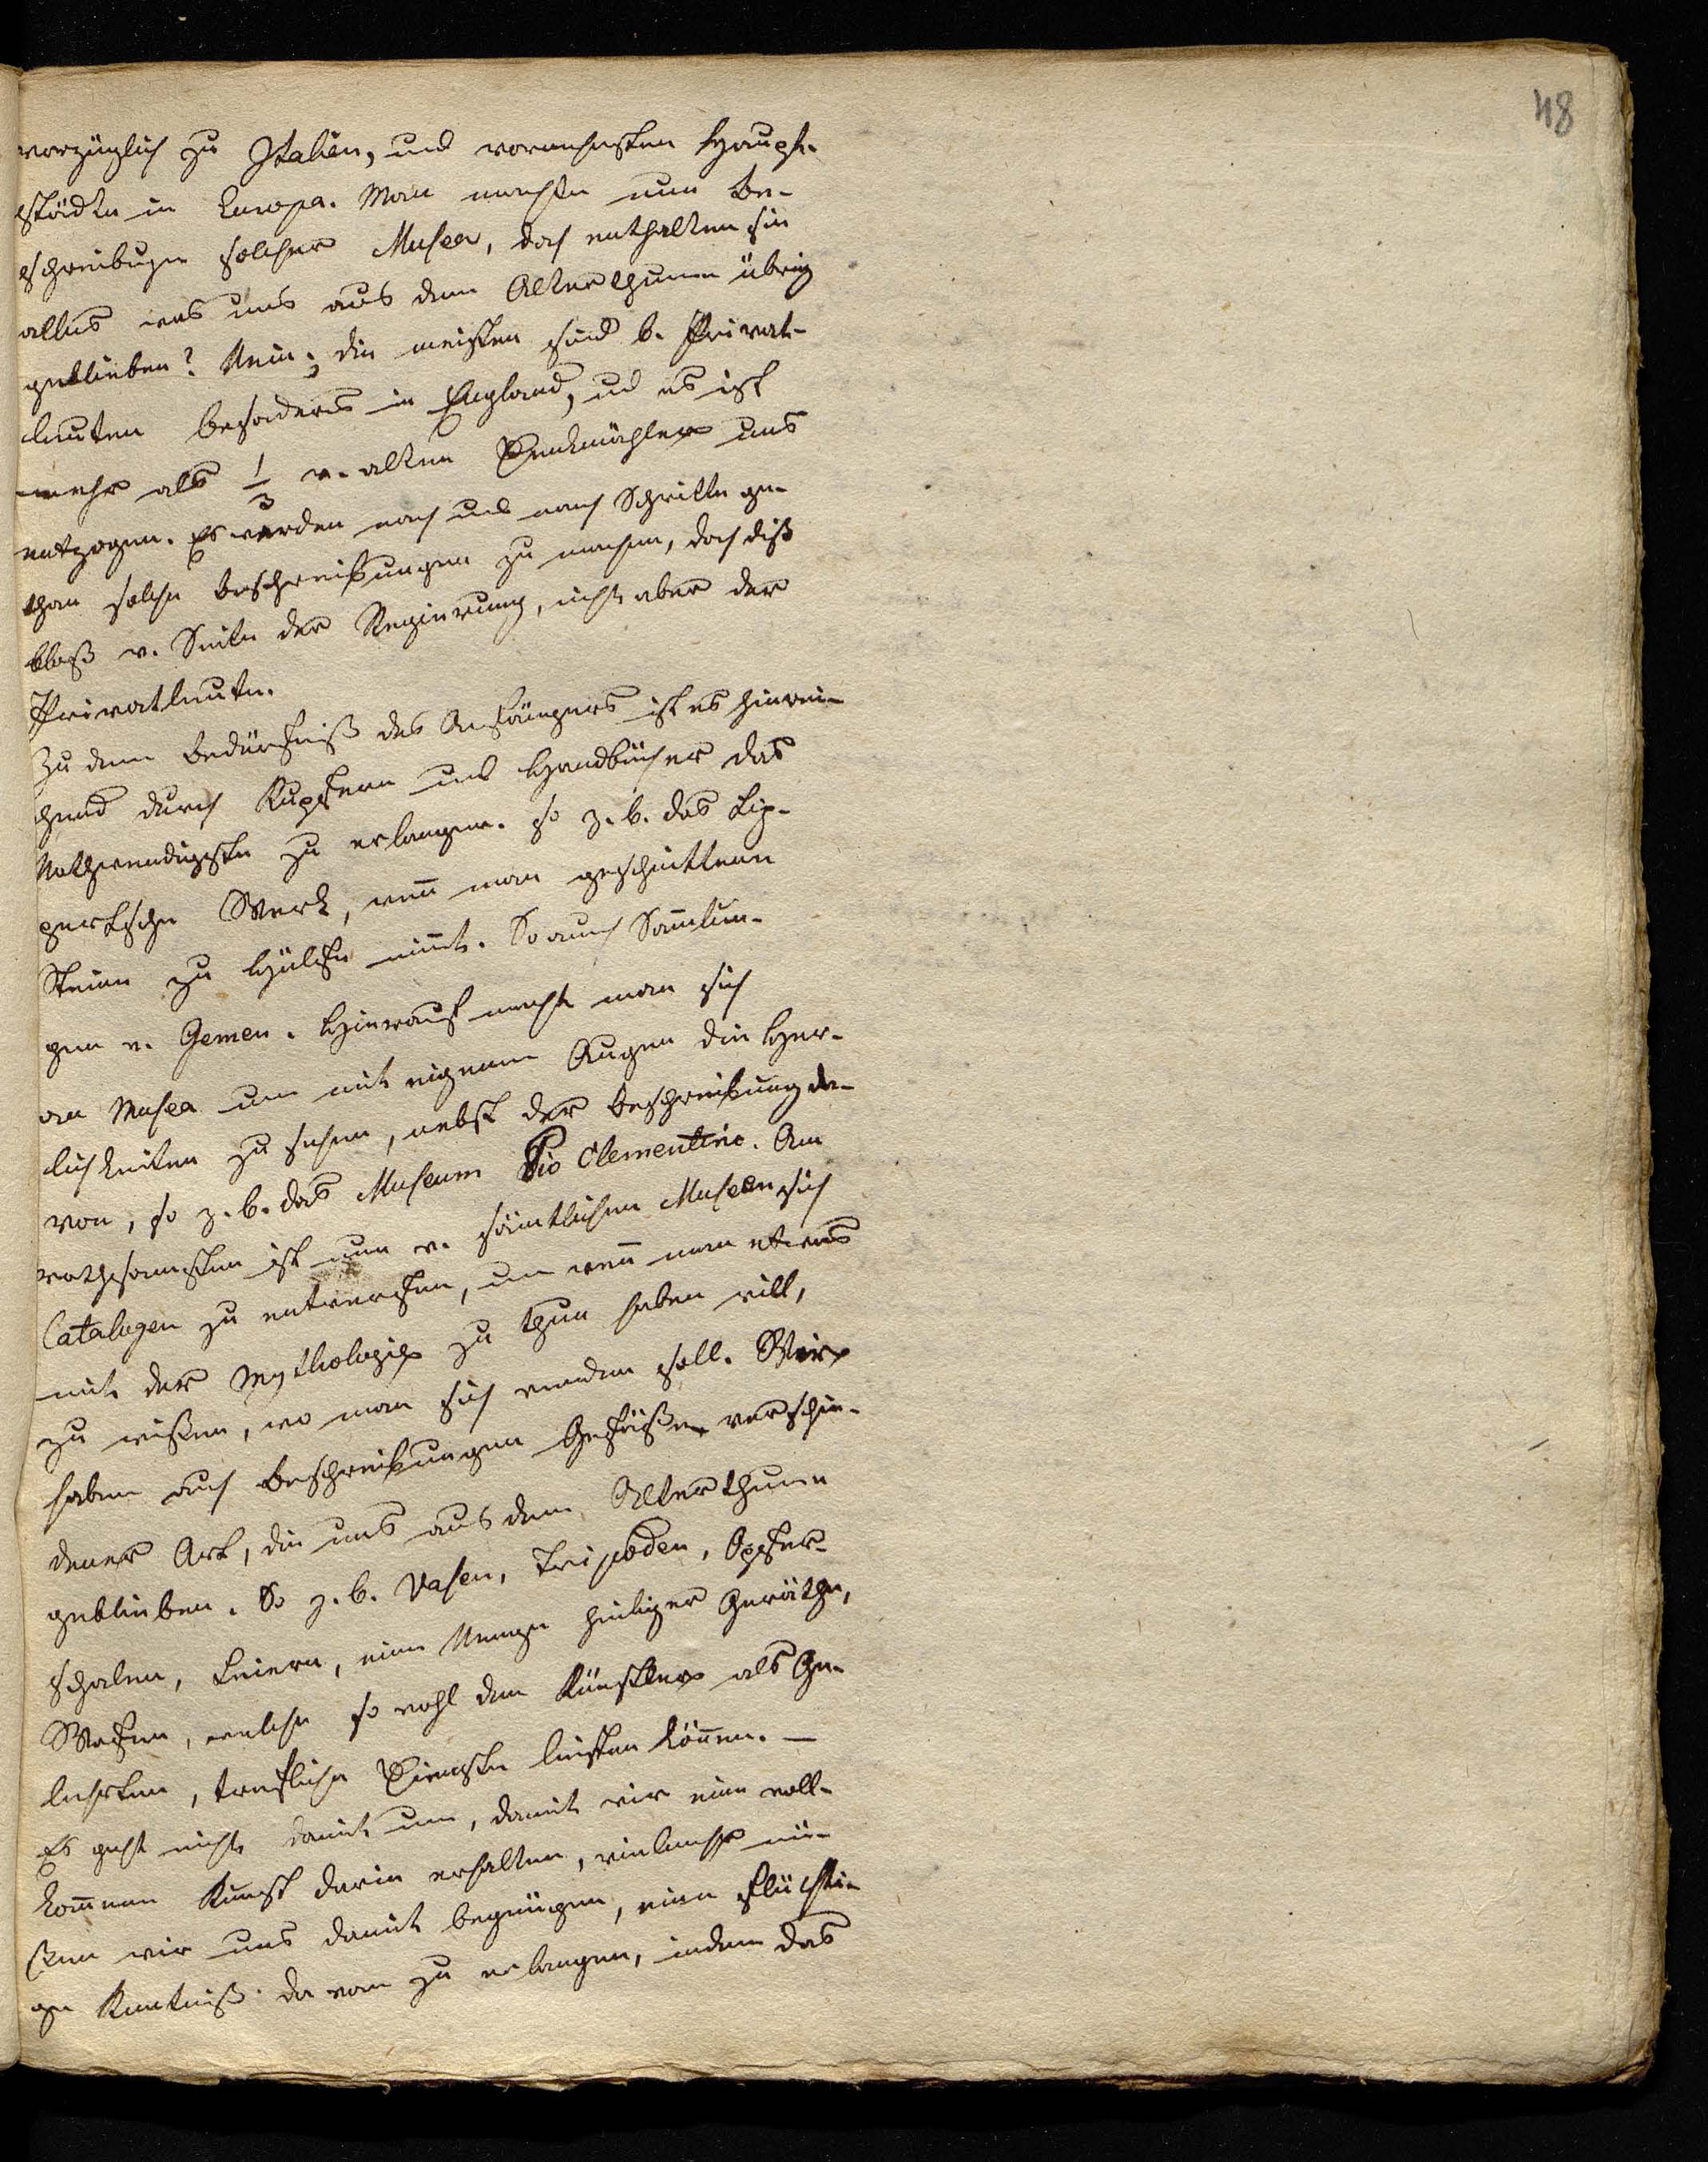 48
vorzüglich zu Italien, und vornehmsten Haupt-
städten in Europa. Man machte nun Be-
schreibungen solcher Museen, doch enthalten sie
alles was uns aus dem Alterthume übrig
geblieben? Nein; die meisten sind b. Privat-
leuten besonders in England, ud es ist
mehr als 1/3 v. alten Denkmähler uns
entzogen. Es werden noch und noch Schritte ge-
than solche Beschreibungen zu machen, doch diß
bloß v. Seite der Regierung, nicht aber der
Privatleute.
Zu dem Bedürfniß des Anfängers ist es hinrei-
chend durch Kupfern und Handbücher das
Nothwendigste zu erlangen. so z. b. das Lip-
pertsche Werk, wen̄ man geschnittene
Steine zu Hülfe nim̄t. So auch Sam̄lun-
gen v. Gemen. Hierauf macht man sich
an Musea um mit eigenen Augen die Her-
lichkeiten zu sehen, nebst der Beschreibung da-
von, so z. b. das Museum Pio Clementino. Am
rathsamsten ist nun v. sämtlichen Museen sich
Catalogen zu entwerfen, um wen̄ man etwas
mit der Mythologie zu thun haben will,
zu wißen, wo man sich wenden soll. Wir
haben auch Beschreibungen Gefäße verschie-
dener Art, die uns aus dem Alterthume
geblieben. So z. b. Vasen, Tripoden, Opfer-
schalen, Leiern, eine Menge heiliger Geräthe,
Wafen, welche so wohl dem Künstler als Ge-
lehrten, trefliche Dienste leisten kön̄en. —
Es geht nicht damit um, damit wir eine voll-
kom̄ene Kunst darin erhalten, vielmehr mü-
ßen wir uns damit begnügen, eine flüchti-
ge Kentniß davon zu erlangen, indem das